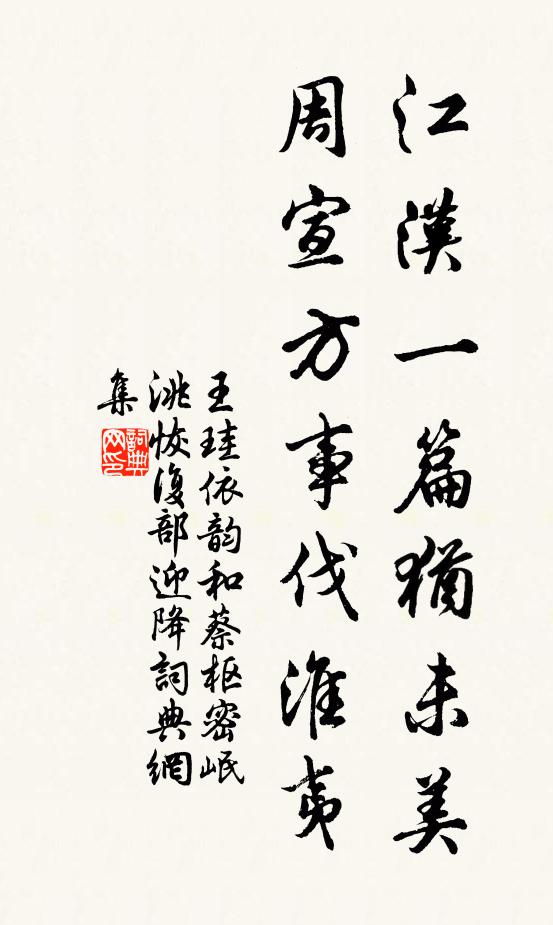 江漢一篇猶未美
周宣方事伐淮夷
王珪依韵和蔡枢密岷
洮恢復部迎降詞典網
集
詞典
网印